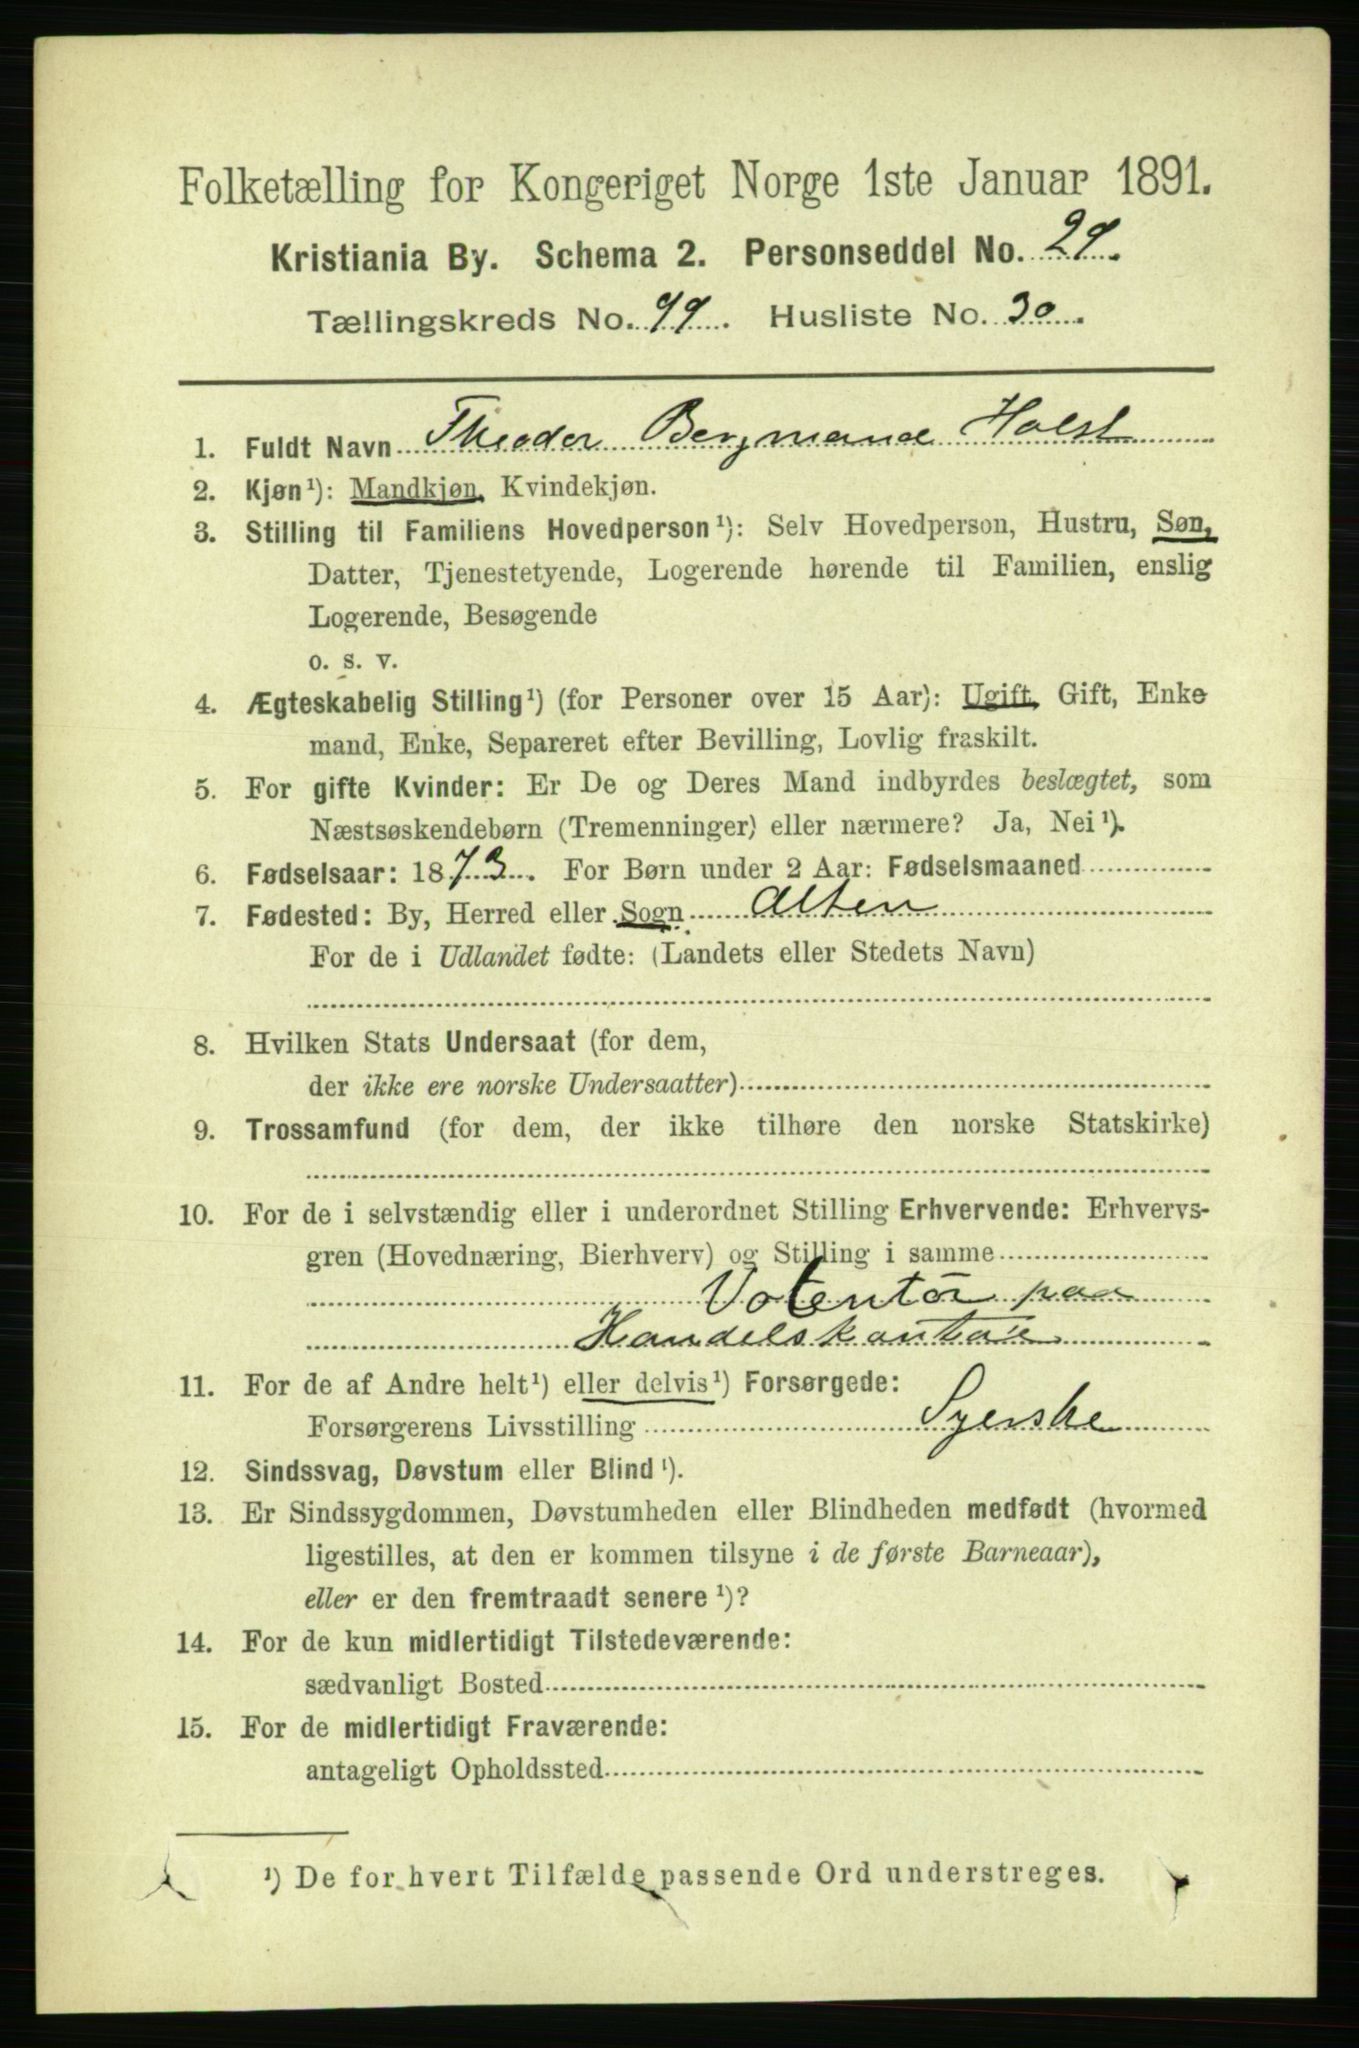 Folketælling for Kongeriget Norge 1ste Januar 1891.
Kristiania By. Schema 2. Personseddel No. 29.
Tællingskreds No. 99. Husliste No. 30.
1. Fuldt Navn Theodor Bergmann Holst
2. Kjøn¹): Mandkjøn, Kvindekjøn.
3. Stilling til Familiens Hovedperson¹): Selv Hovedperson, Hustru, Søn,
Datter, Tjenestetyende, Logerende hørende til Familien, enslig
Logerende, Besøgende
o. s. v.
4. Ægteskabelig Stilling¹) (for Personer over 15 Aar): Ugift, Gift, Enke
mand, Enke, Separeret efter Bevilling, Lovlig fraskilt.
5. For gifte Kvinder: Er De og Deres Mand indbyrdes beslægtet, som
Næstsøskendebørn (Tremenninger) eller nærmere? Ja, Nei¹).
6. Fødselsaar: 1873. For Børn under 2 Aar: Fødselsmaaned
7. Fødested: By, Herred eller Sogn Alten
For de i Udlandet fødte: (Landets eller Stedets Navn)
8. Hvilken Stats Undersaat (for dem,
der ikke ere norske Undersaatter)
9. Trossamfund (for dem, der ikke tilhøre den norske Statskirke)
10. For de i selvstændig eller i underordnet Stilling Erhvervende: Erhvervs-
gren (Hovednæring, Bierhverv) og Stilling i samme
Volentör paa
Handelskontor
11. For de af Andre helt¹) eller delvis¹) Forsørgede:
Forsørgerens Livsstilling Syerske
12. Sindssvag, Døvstum eller Blind¹).
13. Er Sindssygdommen, Døvstumheden eller Blindheden medfødt (hvormed
ligestilles, at den er kommen tilsyne i de første Barneaar),
eller er den fremtraadt senere¹)?
14. For de kun midlertidigt Tilstedeværende:
sædvanligt Bosted
15. For de midlertidigt Fraværende:
antageligt Opholdssted
¹) De for hvert Tilfælde passende Ord understreges.